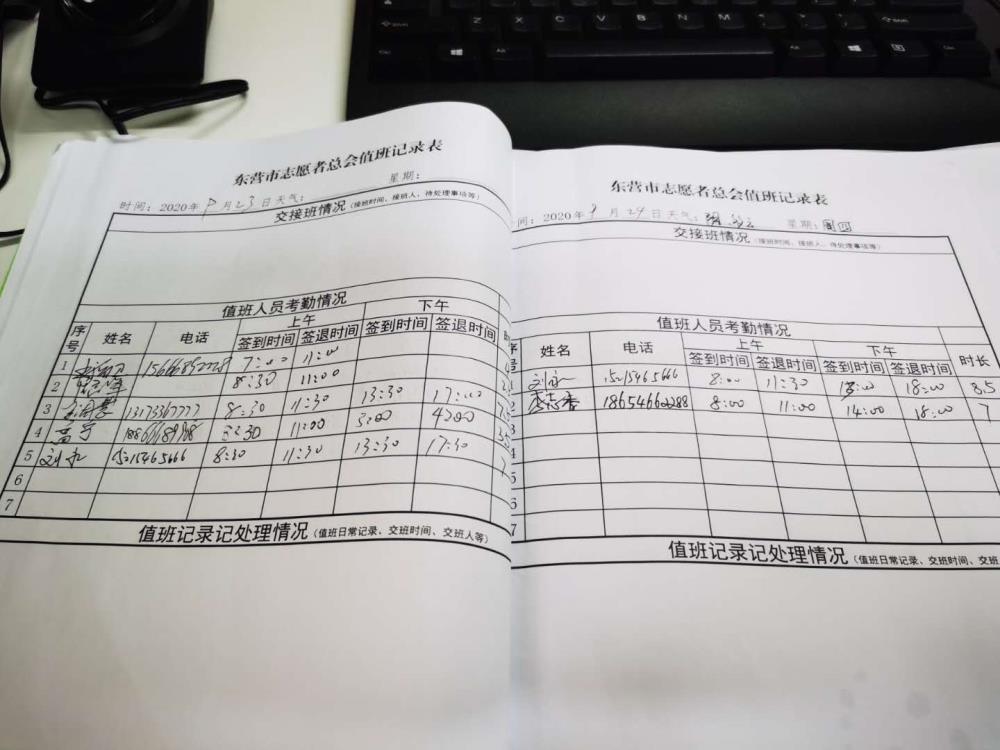 东营市志愿者总会值班记录表
时间：2020年 月23日天气： 星期：
交接班情况（接班时间、接班人、待处理事项等）
值班人员考勤情况
序号 姓名 电话 上午 下午
签到时间 签退时间 签到时间 签退时间
1 15666892228 7:00 11:00
2 8:30 11:00 13:30 17:00
3 13173367777 8:30 11:30 3:00 4:00
4 高宇 11:00
5 刘永 15215465666 8:30 11:30 13:30 17:30
6
7
值班记录记处理情况（值班日常记录、交班时间、交班人等）
东营市志愿者总会值班记录表
间：2020年9月24日天气： 星期：周四
交接班情况（接班时间、接班人、待处理事项等）
值班人员考勤情况
序号 姓名 电话 上午 下午 时长
签到时间 签退时间 签到时间 签退时间
1 刘永 15215465666 8:00 11:30 18:00 8.5
2 李志香 18654660288 8:00 11:00 14:00 18:00 7
3
4
5
6
7
值班记录记处理情况（值班日常记录、交班时间、交班